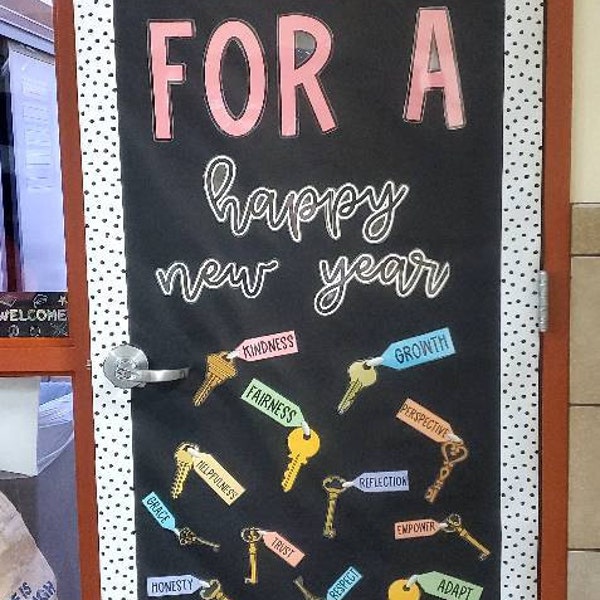 FOR A
happy
new year
WELCOME
KINDNESS
GROWTH
FAIRNESS
PERSPECTIVE
HELPFULNESS
REFLECTION
GRACE
TRUST
EMPOWER
HONESTY
RESPECT
ADAPT
IS